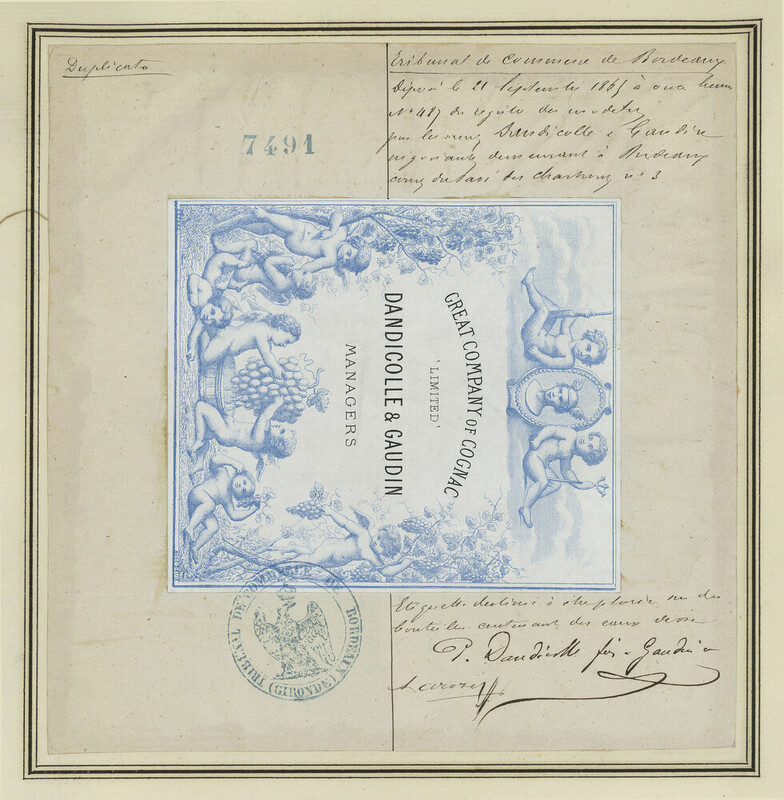 Duplicata
7491
Tribunal de Commerce de Bordeaux
Déposé le 21 Septembre 1865 à onze heures
N° 487 du registre des modeles
par les sieurs Dandicolle & Gaudin
négociants demeurant à Bordeaux
cours du Pavé des Chartrons n° 3
GREAT COMPANY OF COGNAC
'LIMITED'
DANDICOLLE & GAUDIN
MANAGERS
TRIBUNAL DE COMMERCE DE BORDEAUX
(GIRONDE)
Etiquette destinée à être sur des
bouteilles contenant des eaux de vie
P. Dandicolle Gaudin